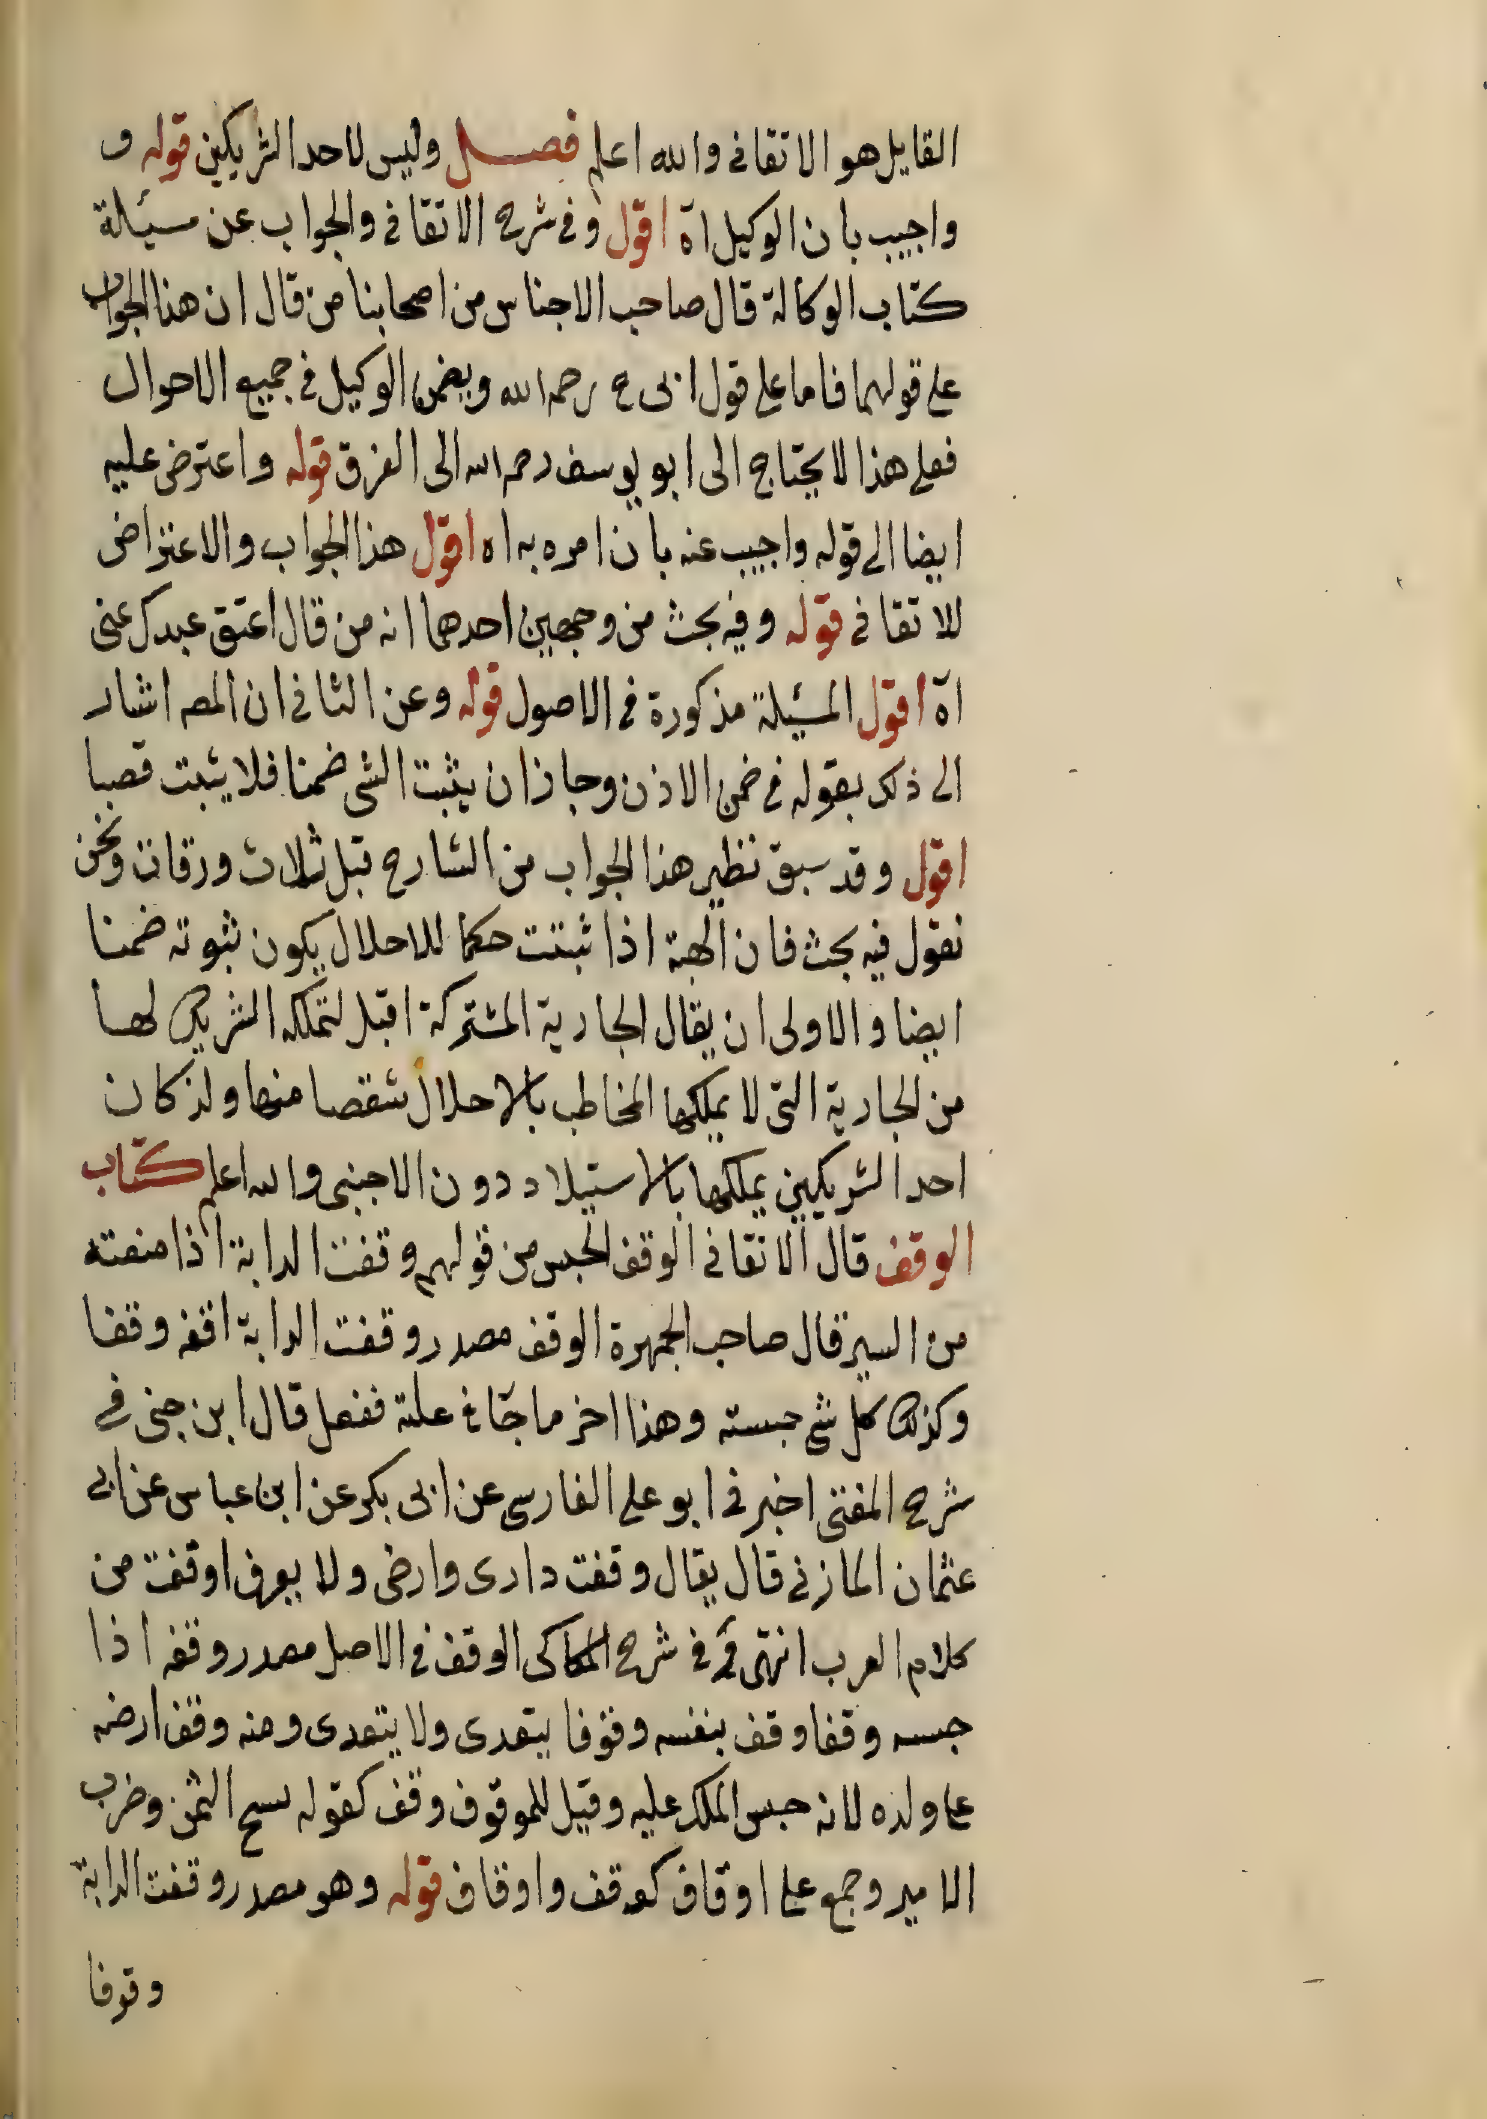 القايل هو الاتقانى والله اعلم فصل وليس لاحد الشريكين قوله و
واجيب بان الوكيل اه اقول وفى شرح الاتقانى والجواب عن مسئلة
كتاب الوكالة قال صاحب الاجناس من اصحابنا من قال ان هذا الجواب
على قولهما فاما على قول ابى ح رحمه الله ويضمن الوكيل فى جميع الاحوال
فعلى هذا لا يحتاج الى ابو يوسف رحمه الله الى الفرق قوله واعترض عليه
ايضا الى قوله واجيب عنه بان امره به اه اقول هذا الجواب والاعتراض
للاتقانى قوله وفيه بحث من وجهين احدهما انه من قال اعتق عبدك عنى
اه اقول المسئلة مذكورة فى الاصول قوله وعن الثانى ان المصه اشار
الى ذلك بقوله فى ضمن الاذن وجاز ان يثبت الشى ضمنا فلا يثبت قصبا
اقول وقد سبق نظير هذا الجواب من الشارح قبل ثلاث ورقات ونحن
نقول فيه بحث فان الهبة اذا ثبتت حكما للاحلال يكون ثبوته ضمنا
ايضا والاولى ان يقال الجارية المشتركة اقبل لتملكه الشريك لها
من الجارية التى لا يملكها المخاطب بالاحلال شقصا منها ولذ كان
احد الشريكين يملكها بالاستيلاد دون الاجنبى والله اعلم كتاب
الوقف قال الاتقانى الوقف الحبس من قولهم وقفت الدابة اذا منعته
من السير قال صاحب الجمهرة الوقف مصدر وقفت الدابة اقفه وقفا
وكذلك كل شى حبسته وهذا اخر ما جآ على ففعل قال ابن جنى فى
شرح المفتى اخبرنى ابو على الفارسى عن ابى بكر عن ابن عباس عن ابى
عثمان المازنى قال يقال وقفت دارى وارضى ولا يعرف اوقفت من
كلام العرب انتهى فى شرح الكاكى الوقف فى الاصل مصدر وقفه اذا
حبسه وقفا وقف بنفسه وقوفا يتعدى ولا يتعدى ومنه وقف ارضه
على ولده لانه حبس الملك عليه وقيل للموقوف وقف كقوله نسج الثمن وضرب
الامير وجمع على اوقاف كوقف واوقاف قوله وهو مصدر وقفت الدابة
وقوفا